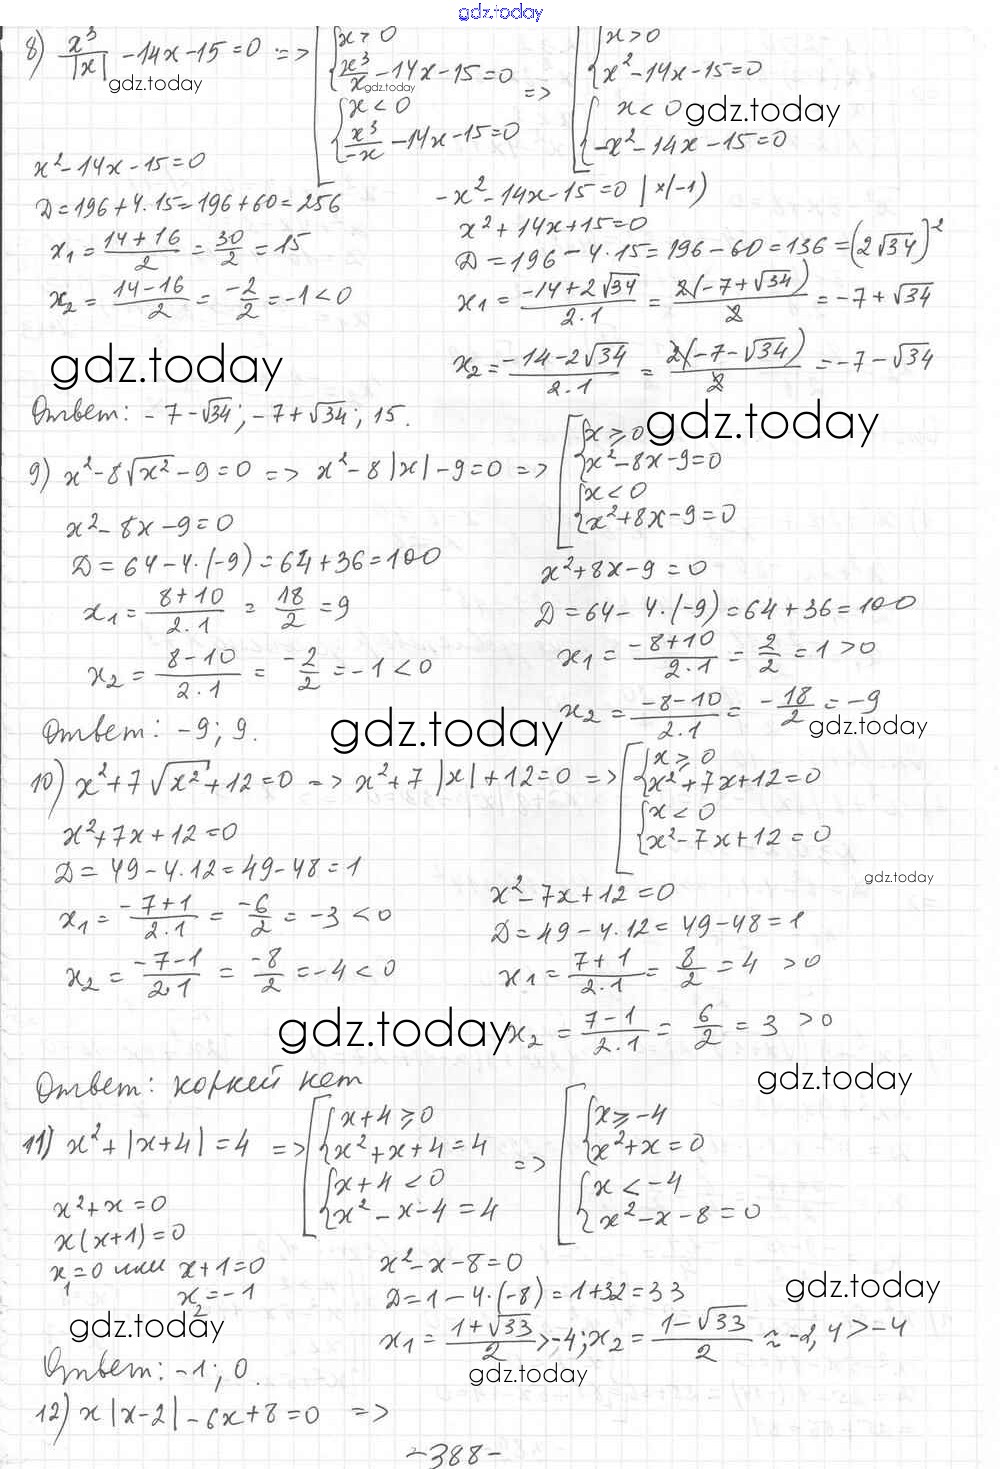 gdz.today
8) x³/|x| - 14x - 15 = 0 => [ { x > 0 ; x³/x - 14x - 15 = 0 ; { x < 0 ; x³/-x - 14x - 15 = 0 => [ { x > 0 ; x² - 14x - 15 = 0 ; { x < 0 ; -x² - 14x - 15 = 0
gdz.today
gdz.today
gdz.today
x² - 14x - 15 = 0
Д = 196 + 4·15 = 196 + 60 = 256
x₁ = (14 + 16)/2 = 30/2 = 15
x₂ = (14 - 16)/2 = -2/2 = -1 < 0
-x² - 14x - 15 = 0 | ×(-1)
x² + 14x + 15 = 0
Д = 196 - 4·15 = 196 - 60 = 136 = (2√34)²
x₁ = (-14 + 2√34)/(2·1) = 2(-7 + √34)/2 = -7 + √34
x₂ = (-14 - 2√34)/(2·1) = 2(-7 - √34)/2 = -7 - √34
gdz.today
Ответ: -7 - √34; -7 + √34; 15.
gdz.today
9) x² - 8√x² - 9 = 0 => x² - 8|x| - 9 = 0 => [ { x ≥ 0 ; x² - 8x - 9 = 0 ; { x < 0 ; x² + 8x - 9 = 0
x² - 8x - 9 = 0
Д = 64 - 4·(-9) = 64 + 36 = 100
x₁ = (8 + 10)/(2·1) = 18/2 = 9
x₂ = (8 - 10)/(2·1) = -2/2 = -1 < 0
x² + 8x - 9 = 0
Д = 64 - 4·(-9) = 64 + 36 = 100
x₁ = (-8 + 10)/(2·1) = 2/2 = 1 > 0
x₂ = (-8 - 10)/(2·1) = -18/2 = -9
gdz.today
gdz.today
Ответ: -9; 9.
10) x² + 7√x² + 12 = 0 => x² + 7|x| + 12 = 0 => [ { x ≥ 0 ; x² + 7x + 12 = 0 ; { x < 0 ; x² - 7x + 12 = 0
x² + 7x + 12 = 0
Д = 49 - 4·12 = 49 - 48 = 1
x₁ = (-7 + 1)/(2·1) = -6/2 = -3 < 0
x₂ = (-7 - 1)/(2·1) = -8/2 = -4 < 0
gdz.today
x² - 7x + 12 = 0
Д = 49 - 4·12 = 49 - 48 = 1
x₁ = (7 + 1)/(2·1) = 8/2 = 4 > 0
x₂ = (7 - 1)/(2·1) = 6/2 = 3 > 0
gdz.today
gdz.today
Ответ: корней нет
11) x² + |x + 4| = 4 => [ { x + 4 ≥ 0 ; x² + x + 4 = 4 ; { x + 4 < 0 ; x² - x - 4 = 4 => [ { x ≥ -4 ; x² + x = 0 ; { x < -4 ; x² - x - 8 = 0
x² + x = 0
x(x + 1) = 0
x₁ = 0 или x + 1 = 0
x₂ = -1
x² - x - 8 = 0
Д = 1 - 4·(-8) = 1 + 32 = 33
x₁ = (1 + √33)/2 > -4; x₂ = (1 - √33)/2 ≈ -2,4 > -4
gdz.today
gdz.today
gdz.today
Ответ: -1; 0.
12) x|x - 2| - 6x + 8 = 0 =>
-388-